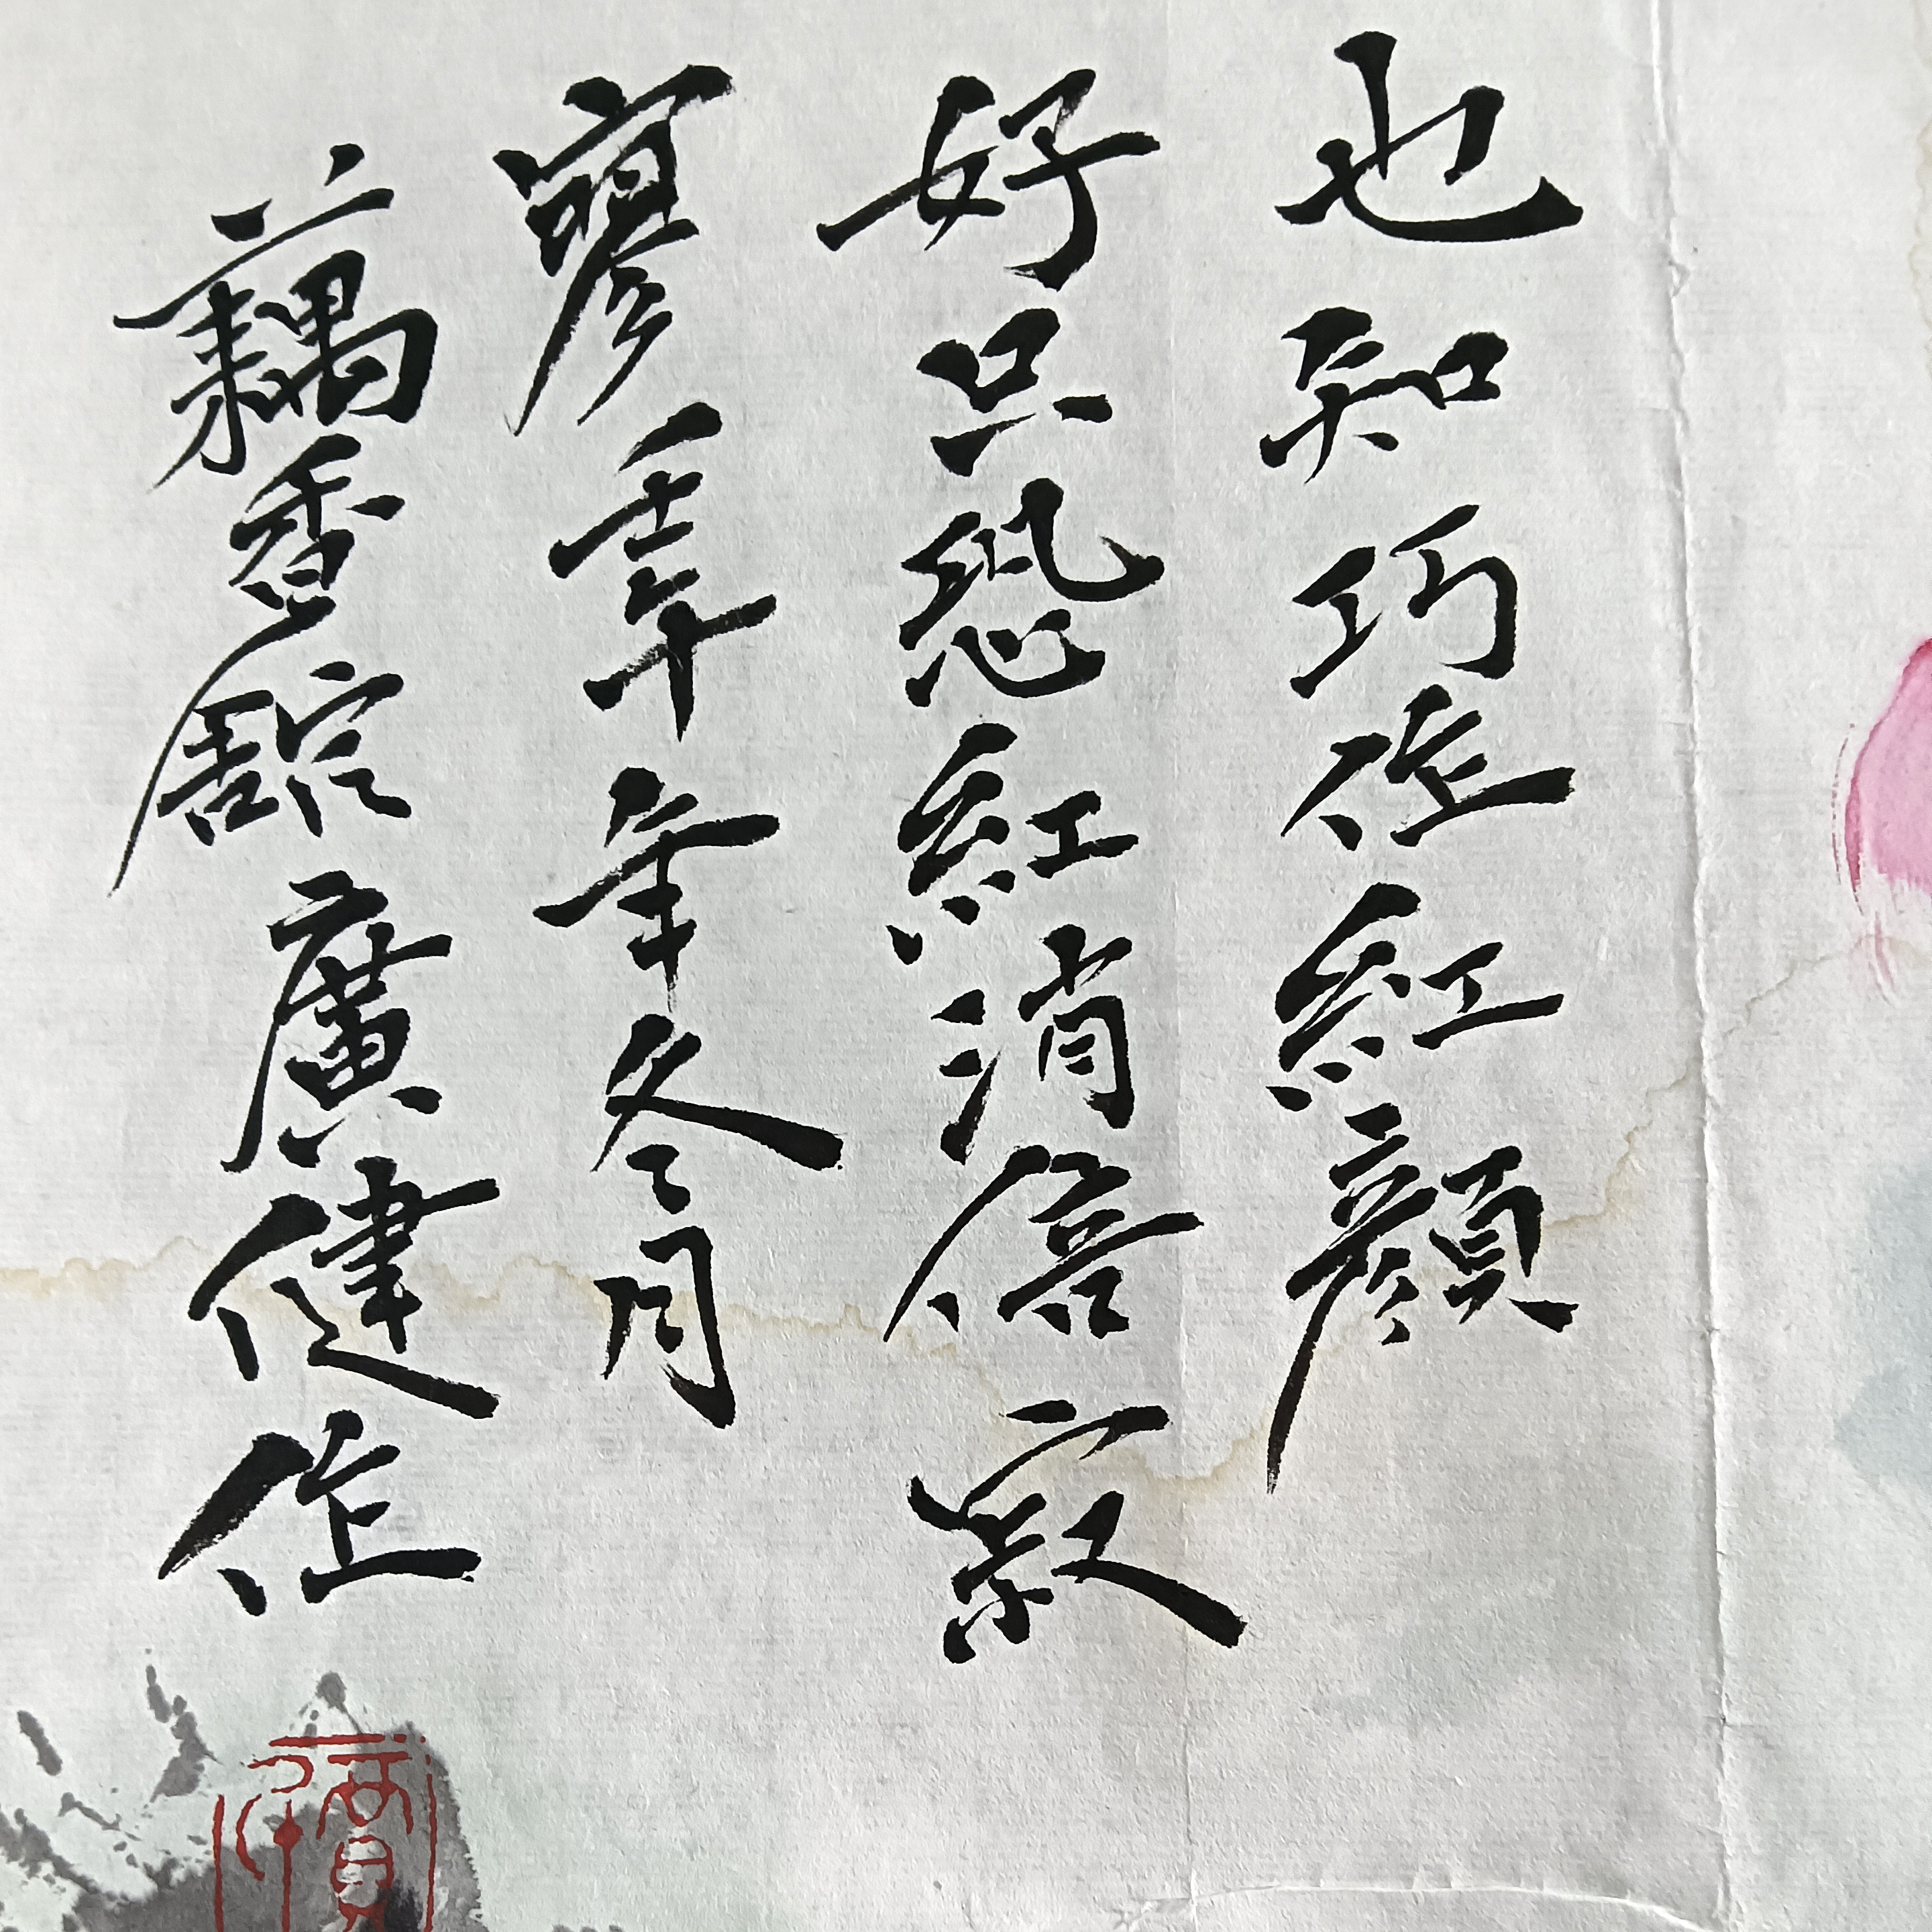 也知巧作紅顏
好只恐紅消倍寂
寥壬午年冬月
藕香館廣健作